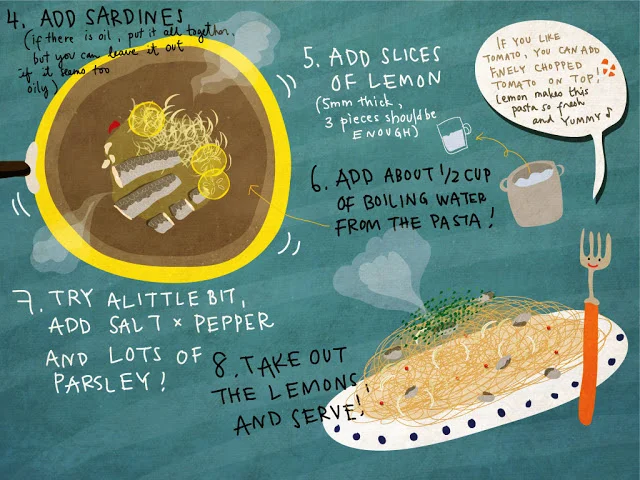 4. ADD SARDINES
(if there is oil, put it all together,
but you can leave it out
if it seems too
oily)
5. ADD SLICES
OF LEMON
(5mm thick,
3 pieces should be
ENOUGH)
IF YOU LIKE
TOMATO, YOU CAN ADD
FINELY CHOPPED
TOMATO ON TOP!
Lemon makes this
pasta so fresh
and YUMMY♪
6. ADD ABOUT 1/2 CUP
OF BOILING WATER
FROM THE PASTA!
7. TRY A LITTLE BIT,
ADD SALT × PEPPER
AND LOTS OF
PARSLEY!
8. TAKE OUT
THE LEMONS,
AND SERVE!